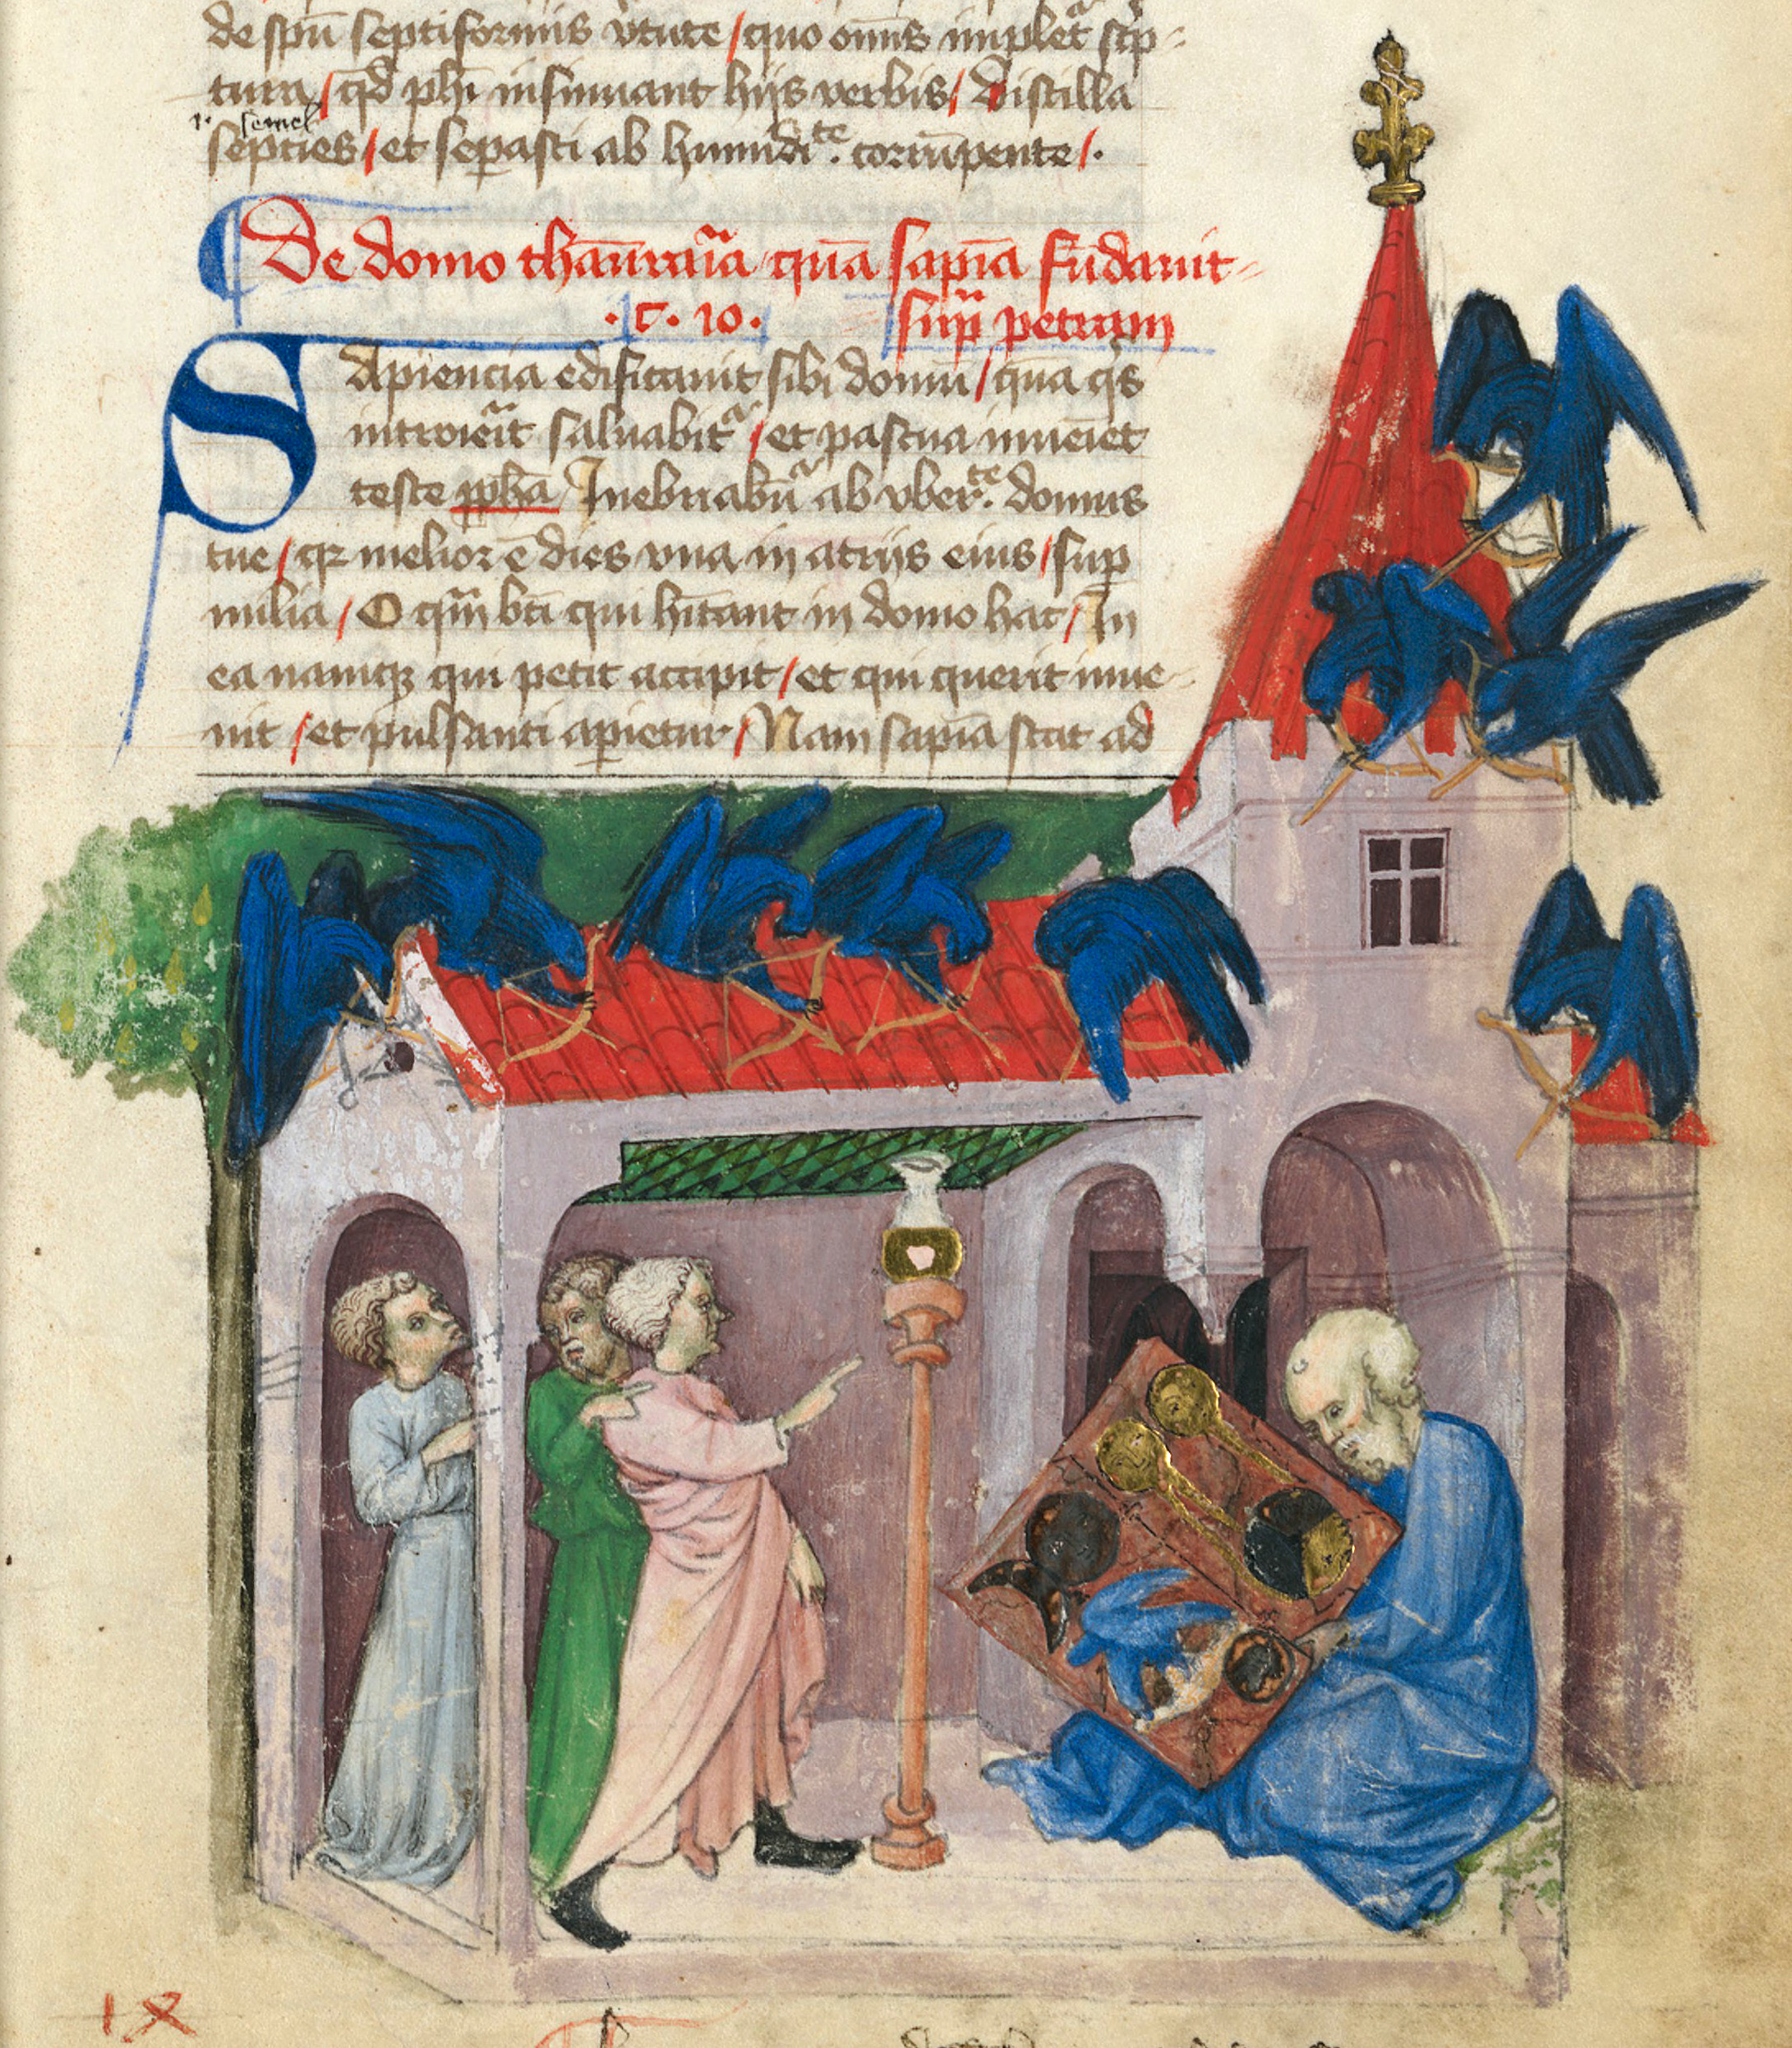 de spū septiformis v̉tute / quo om̄īs implet᷑ sc̉p-
tura / qd̄ ph̄i insinuant hijs verbis / Distilla
semel
septies / et sepasti ab humidi.te corrūpente / .
De domo thaūraīa quā sapīa fūdauit-
.C. 10. sup petram
SApiencia edificauit sibi domū / quā q̉s
introierit saluabit᷑ / et pascua inueīet
teste ꝓph̄a / Inebriabūt᷑ ab vber.te domus
tue / qꝛ melior ē dies vna in atrijs eius / sup
milia / O qm̄ bt̄i qui hītant in domo hac / In
ea namqꝫ qui petit accipit / et qui querit inue-
nit / et pulsanti apietur / Nam sapīa stat ad
IX